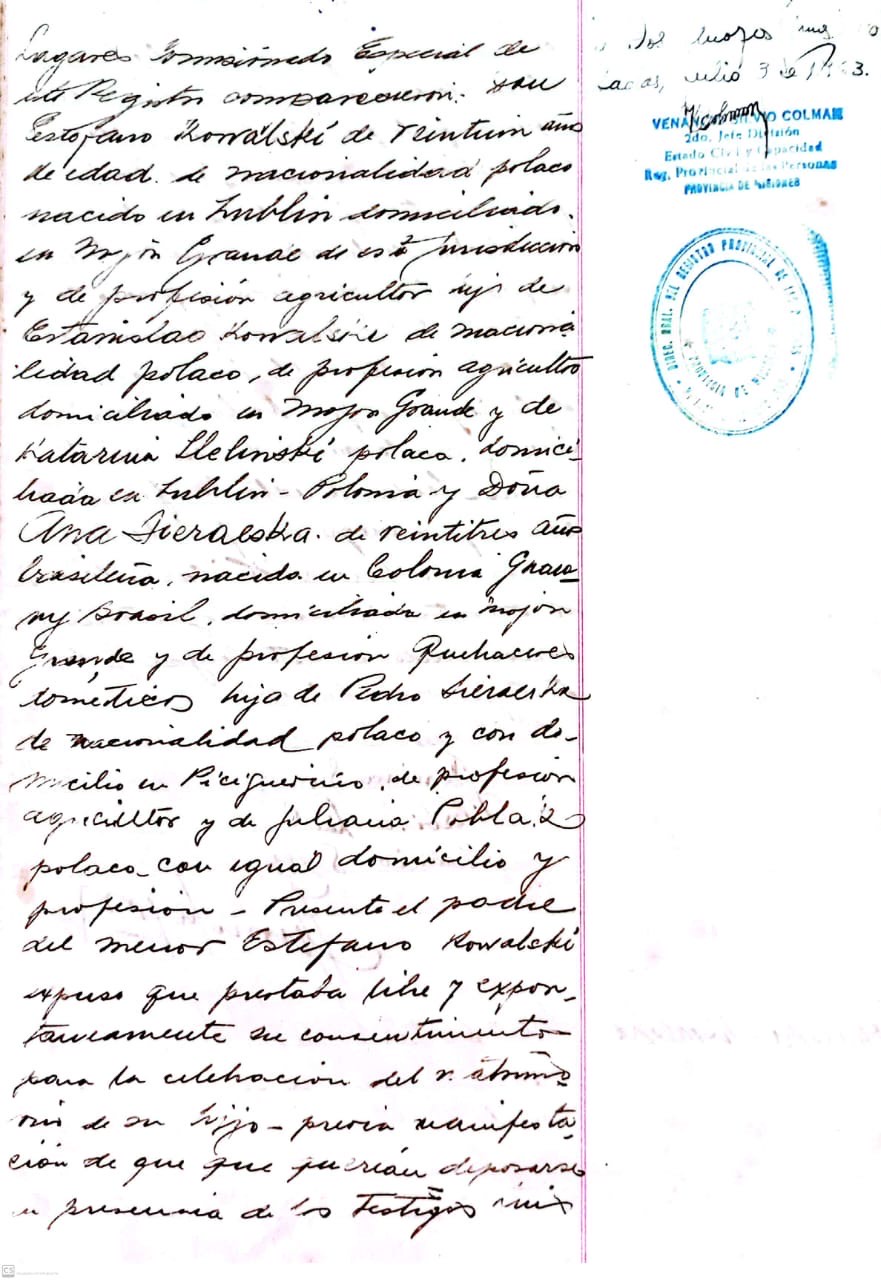 Lagares Comisionado Especial de
este Registro comparecieron: Don
Estefano Kowalski de veintiun años
de edad. de nacionalidad polaco
nacido en Lublin domiciliado.
en Mojón Grande de esta Jurisdiccion
y de profesión agricultor hijo de
Estanislao Kowalski de naciona
lidad polaco, de profesion agricultor
domiciliado en Mojon Grande y de
Katarina polaca. domici-
liada en Lublin - Polonia y Doña
Ana Sieraeska. de veintitres años
brasileña, nacida en Colonia Guara
ny Brasil, domiciliada en Mojon
Grande y de profesion Quehaceres
domésticos hija de Pedro Sieraeska
de nacionalidad polaco y con do-
micilio en de profesion
agricultor y de Juliana
polaca con igual domicilio y
profesion - Presente el padre
del menor Estefano Kowalski
expuso que prestaba libre y expon-
taneamente su consentimiento
para la celebracion del matrimo
nio de su hijo - previa manifesta
ción de que que querian desposarse
en presencia de los testigos
Dos
julio 3 de
VENANCIO SILVIO COLMAN
2do. Jefe División
Estado Civil y Capacidad
Reg. Provincial de las Personas
PROVINCIA DE MISIONES
DIREC. GRAL. DEL REGISTRO PROVINCIAL DE LAS
PROVINCIA DE MISIONES
CS